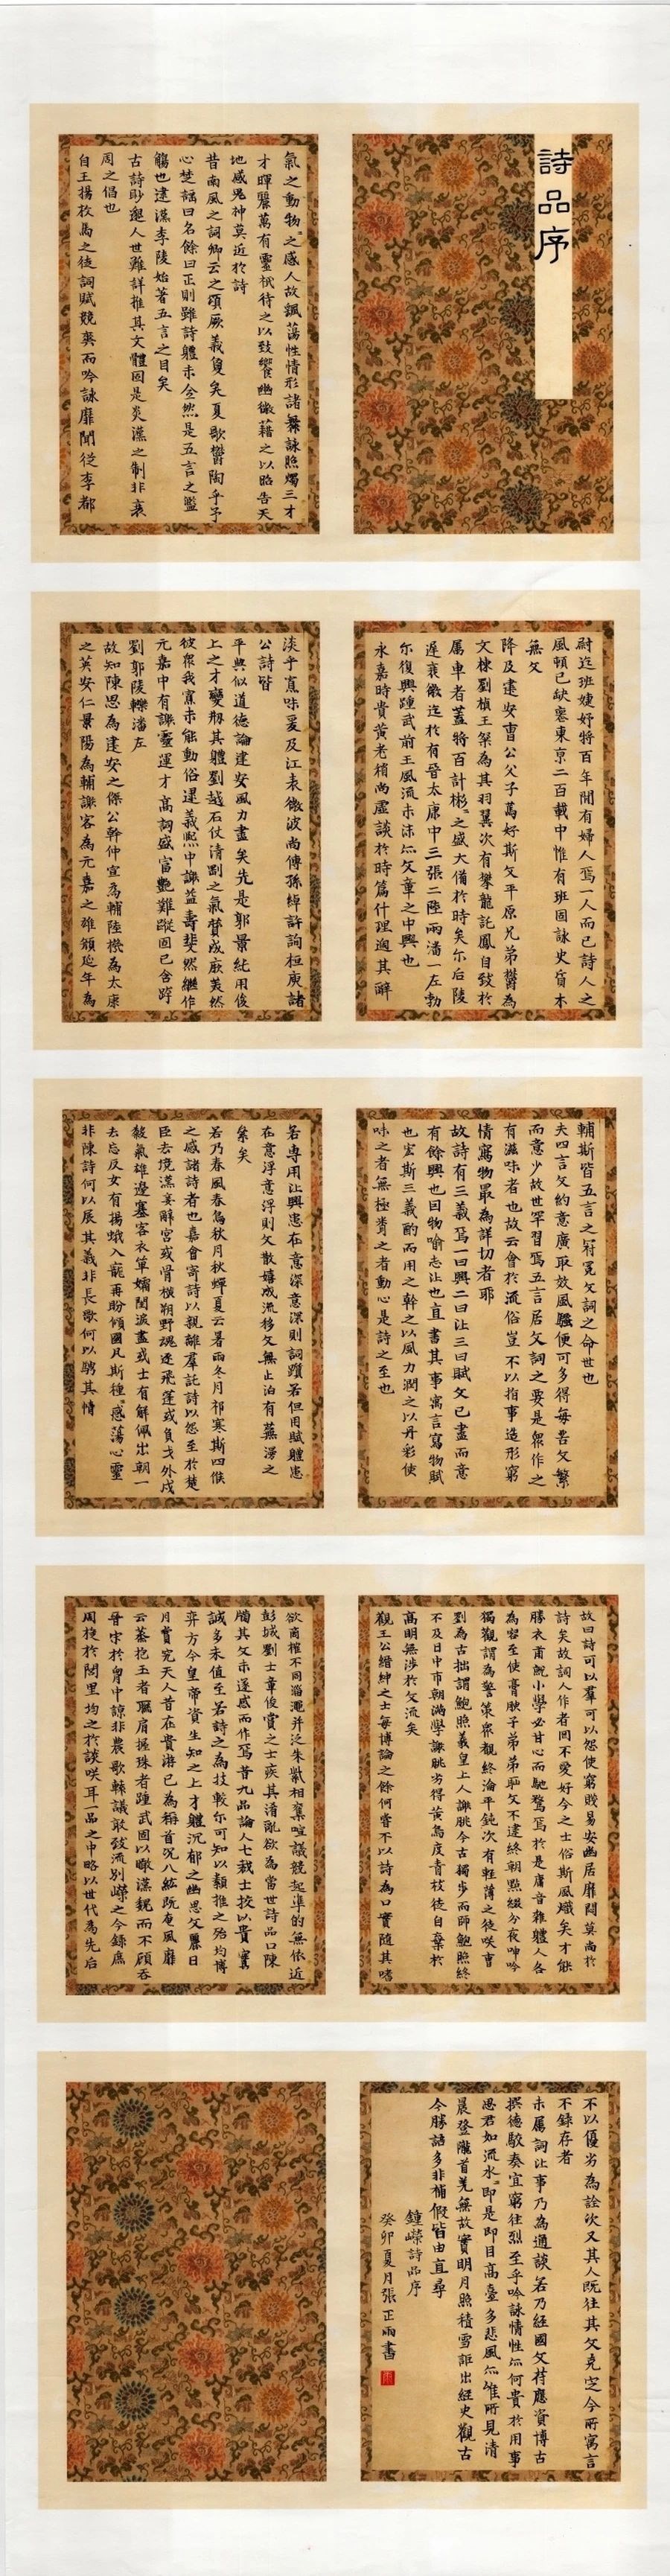 詩品序
氣之動物物之感人故搖蕩性情形諸舞詠照燭三才
才暉麗萬有靈祇待之以致饗幽微藉之以昭告天
地感鬼神莫近於詩
昔南風之詞卿雲之頌厥義敻矣夏歌曰鬱陶乎予
心楚謡曰名余曰正則雖詩體未全然是五言之濫
觴也逮漢李陵始著五言之目矣
古詩眇邈人世難詳推其文體固是炎漢之制非衰
周之倡也
自王揚枚馬之徒詞賦競爽而吟詠靡聞從李都
尉迄班婕妤將百年間有婦人焉一人而已詩人之
風頓已缺喪東京二百載中惟有班固詠史質木
無文
降及建安曹公父子篤好斯文平原兄弟鬱為
文棟劉楨王粲為其羽翼次有攀龍託鳳自致於
屬車者蓋將百計彬彬之盛大備於時矣尔后陵
遲衰微迄於有晉太康中三張二陸兩潘一左勃
尔復興踵武前王風流未沬亦文章之中興也
永嘉時貴黃老稍尚虛談於時篇什理過其辭
淡乎寡味爰及江表微波尚傳孫綽許詢桓庾諸
公詩皆
平典似道德論建安風力盡矣先是郭景純用俊
上之才變創其體劉越石仗清剛之氣贊成厥美然
彼眾我寡未能動俗逮義熙中謝益壽斐然繼作
元嘉中有謝靈運才高詞盛富艷難蹤固已含跨
劉郭陵轢潘左
故知陳思為建安之傑公幹仲宣為輔陸機為太康
之英安仁景陽為輔謝客為元嘉之雄顏延年為
輔斯皆五言之冠冕文詞之命世也
夫四言文約意廣取效風騷便可多得每苦文繁
而意少故世罕習焉五言居文詞之要是眾作之
有滋味者也故云會於流俗豈不以指事造形窮
情寫物最為詳切者耶
故詩有三義焉一曰興二曰比三曰賦文已盡而意
有餘興也因物喻志比也直書其事寓言寫物賦
也宏斯三義酌而用之幹之以風力潤之以丹彩使
味之者無極聞之者動心是詩之至也
若專用比興患在意深意深則詞躓若但用賦體患
在意浮意浮則文散嬉成流移文無止泊有蕪漫之
累矣
若乃春風春鳥秋月秋蟬夏雲暑雨冬月祁寒斯四候
之感諸詩者也嘉會寄詩以親離羣託詩以怨至於楚
臣去境漢妾辭宮或骨橫朔野魂逐飛蓬或負戈外戍
殺氣雄邊塞客衣單孀閨淚盡或士有解佩出朝一
去忘反女有揚蛾入寵再盼傾國凡斯種種感蕩心靈
非陳詩何以展其義非長歌何以騁其情
故曰詩可以羣可以怨使窮賤易安幽居靡悶莫尚於
詩矣故詞人作者罔不愛好今之士俗斯風熾矣才能
勝衣甫就小學必甘心而馳騖焉於是庸音雜體人各
為容至使膏腴子弟恥文不逮終朝點綴分夜呻吟
獨觀謂為警策眾覩終淪平鈍次有輕薄之徒咲曹
劉為古拙謂鮑照羲皇上人謝朓今古獨步而師鮑照終
不及日中市朝滿學謝朓劣得黃鳥度青枝徒自棄於
高明無涉於文流矣
觀王公縉紳之士每博論之餘何嘗不以詩為口實隨其嗜
欲商榷不同淄澠并泛朱紫相奪喧議競起準的無依近
彭城劉士章俊賞之士疾其淆亂欲為當世詩品口陳
牓其文未遂感而作焉昔九品論人七略裁士校以賓實
誠多未值至若詩之為技較尔可知以類推之殆均博
弈方今皇帝資生知之上才體沉郁之幽思文麗日
月賞究天人昔在貴遊已為稱首況八紘既奄風靡
云蒸抱玉者聯肩握珠者踵武固以瞰漢魏而不顧吞
晉宋於胷中諒非農歌轅議敢致流別嶸之今錄庶
周旋於閭里均之於談咲耳一品之中略以世代為先後
不以優劣為詮次又其人既往其文克定今所寓言
不錄存者
夫屬詞比事乃為通談若乃經國文符應資博古
撰德駁奏宜窮往烈至乎吟詠情性亦何貴於用事
思君如流水即是即目高臺多悲風亦惟所見清
晨登隴首羌無故實明月照積雪詎出經史觀古
今勝語多非補假皆由直尋
鍾嶸詩品序
癸卯夏月張正雨書